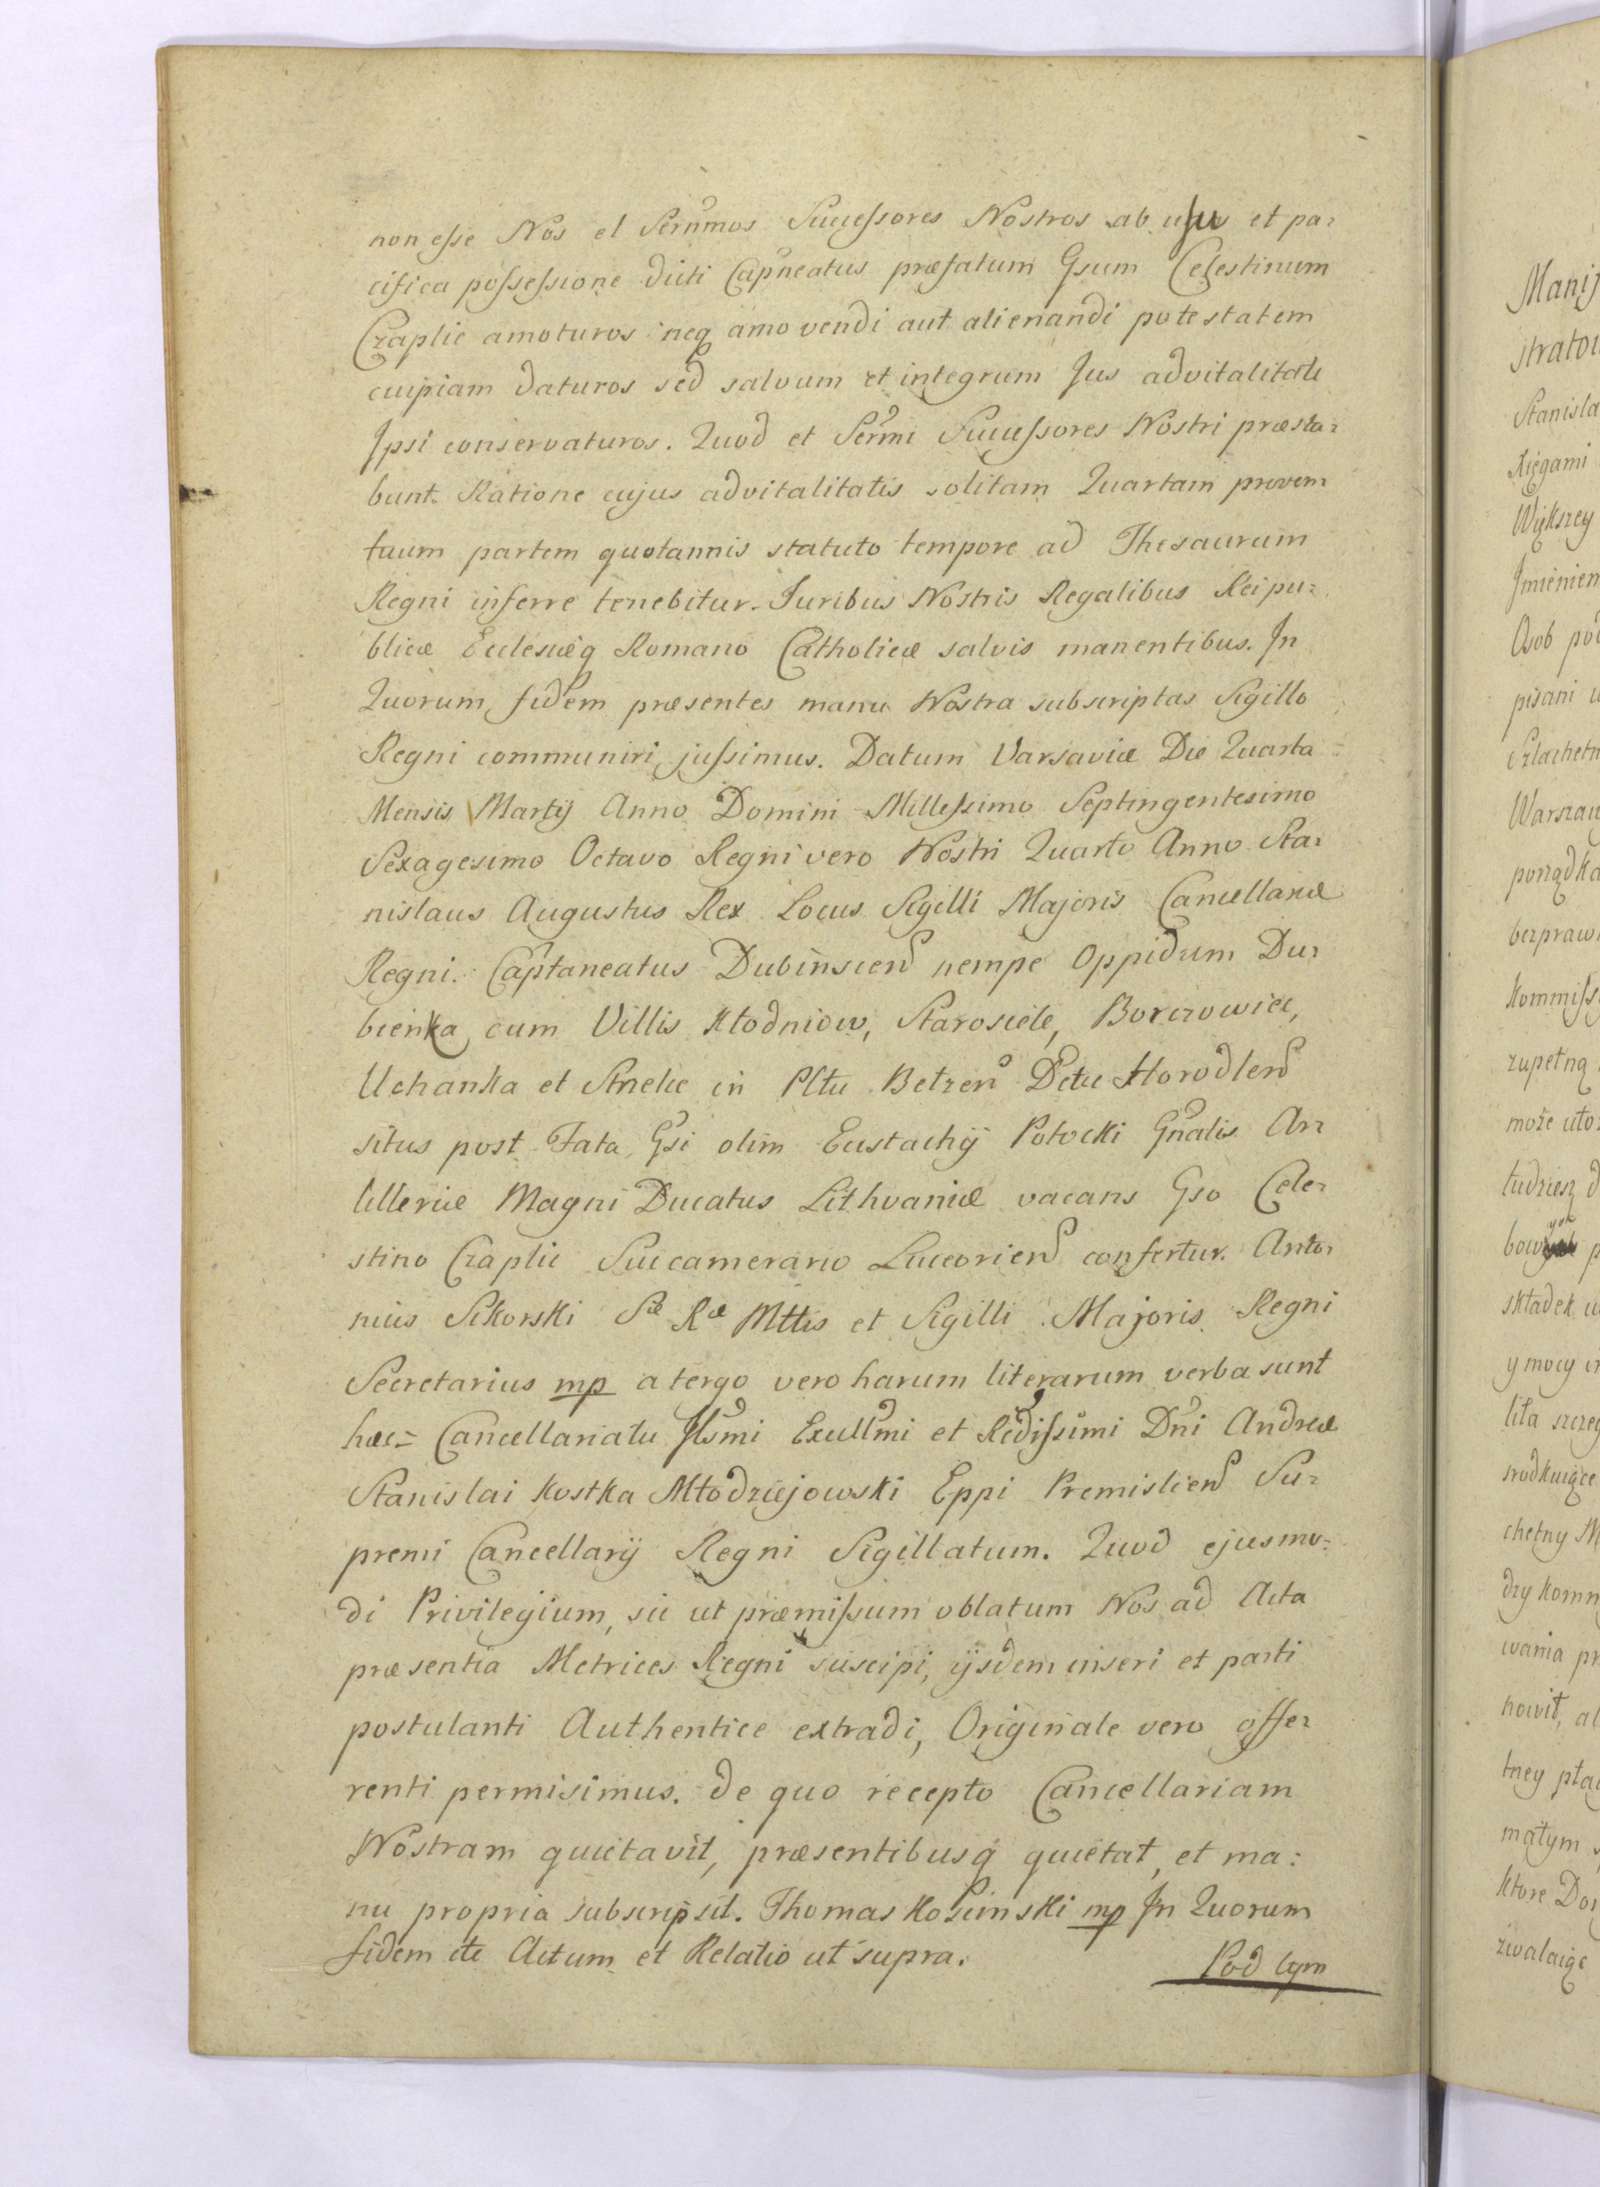 non esse Nos et Sernmos Successores Nostros ab usu et pa=
cifica possessione dicti Capneatus præfatum Gsum Celestinum
Czaplic amoturos neq amovendi aut alienandi potestatem
cuipiam daturos sed salvum et integrum Jus advitalitatis
Ipsi conservaturos. Quod et Sermi Successores Nostri præsta=
bunt. Ratione cujus advitalitatis solitam Quartam proven
tuum partem quotannis statuto tempore ad Thesaurum
Regni inferre tenebitur. Juribus Nostris Regalibus Reipu=
blicæ Ecclesiæq Romano Catholicæ salvis manentibus. In
Quorum fidem præsentes manu Nostra subscriptas Sigillo
Regni communiri jussimus. Datum Varsaviæ Die Quarta
Mensis Martij Anno Domini Millessimo Septingentesimo
Sexagesimo Octavo Regni vero Nostri Quarto Anno Sta=
nislaus Augustus Rex Locus Sigilli Majoris Cancellariæ
Regni. Captaneatus Dubinscen nempe Oppidum Du=
bienka cum Villis Kłodniow, Starosiele, Borczowiec,
Uchanka et Strielce in Pltu Betzen Dctu Horodlen
situs post Fata Gsi olim Eustachij Potocki Gnalis Ar=
tilleriæ Magni Ducatus Lithvaniæ vacans Gso Cele=
stino Czaplic Succamerario Luceorien confertur. Anto=
nius Sikorski Sæ Ræ Mttis et Sigilli Majoris Regni
Secretarius mp a tergo vero harum literarum verba sunt
hæc= Cancellariatu Jllsmi Excllmi et Rcdissimi Dni Andreæ
Stanislai Kostka Młodziejowski Eppi Premislien Su=
premi Cancellarij Regni Sigillatum. Quod ejusmo=
di Privilegium, sic ut præmissum oblatum Nos ad Acta
præsentia Metrices Regni suscipi, ijsdem inseri et parti
postulanti Authentice extradi, Originale vero offe=
renti permisimus. de quo recepto Cancellariam
Nostram quietavit, præsentibusq quietat, et ma=
nu propria subscripsit. Thomas Kosinski mp In Quorum
fidem etc Actum et Relatio ut supra.
Pod tym
Manij
strato
Stanisla
Xięgami
Większey
Jmienien
Osob pod
pisani
Szlachetn
Warszaw
porządka
bezpraw
kommiss
zupełną
może uło
tudziesz d
bow ych p
składek
y mocy
lita szczeg
srodkuiące
chetny M
dzy komm
wania pr
nowit, al
tney płac
małym
ktore Do
zwalaiąc